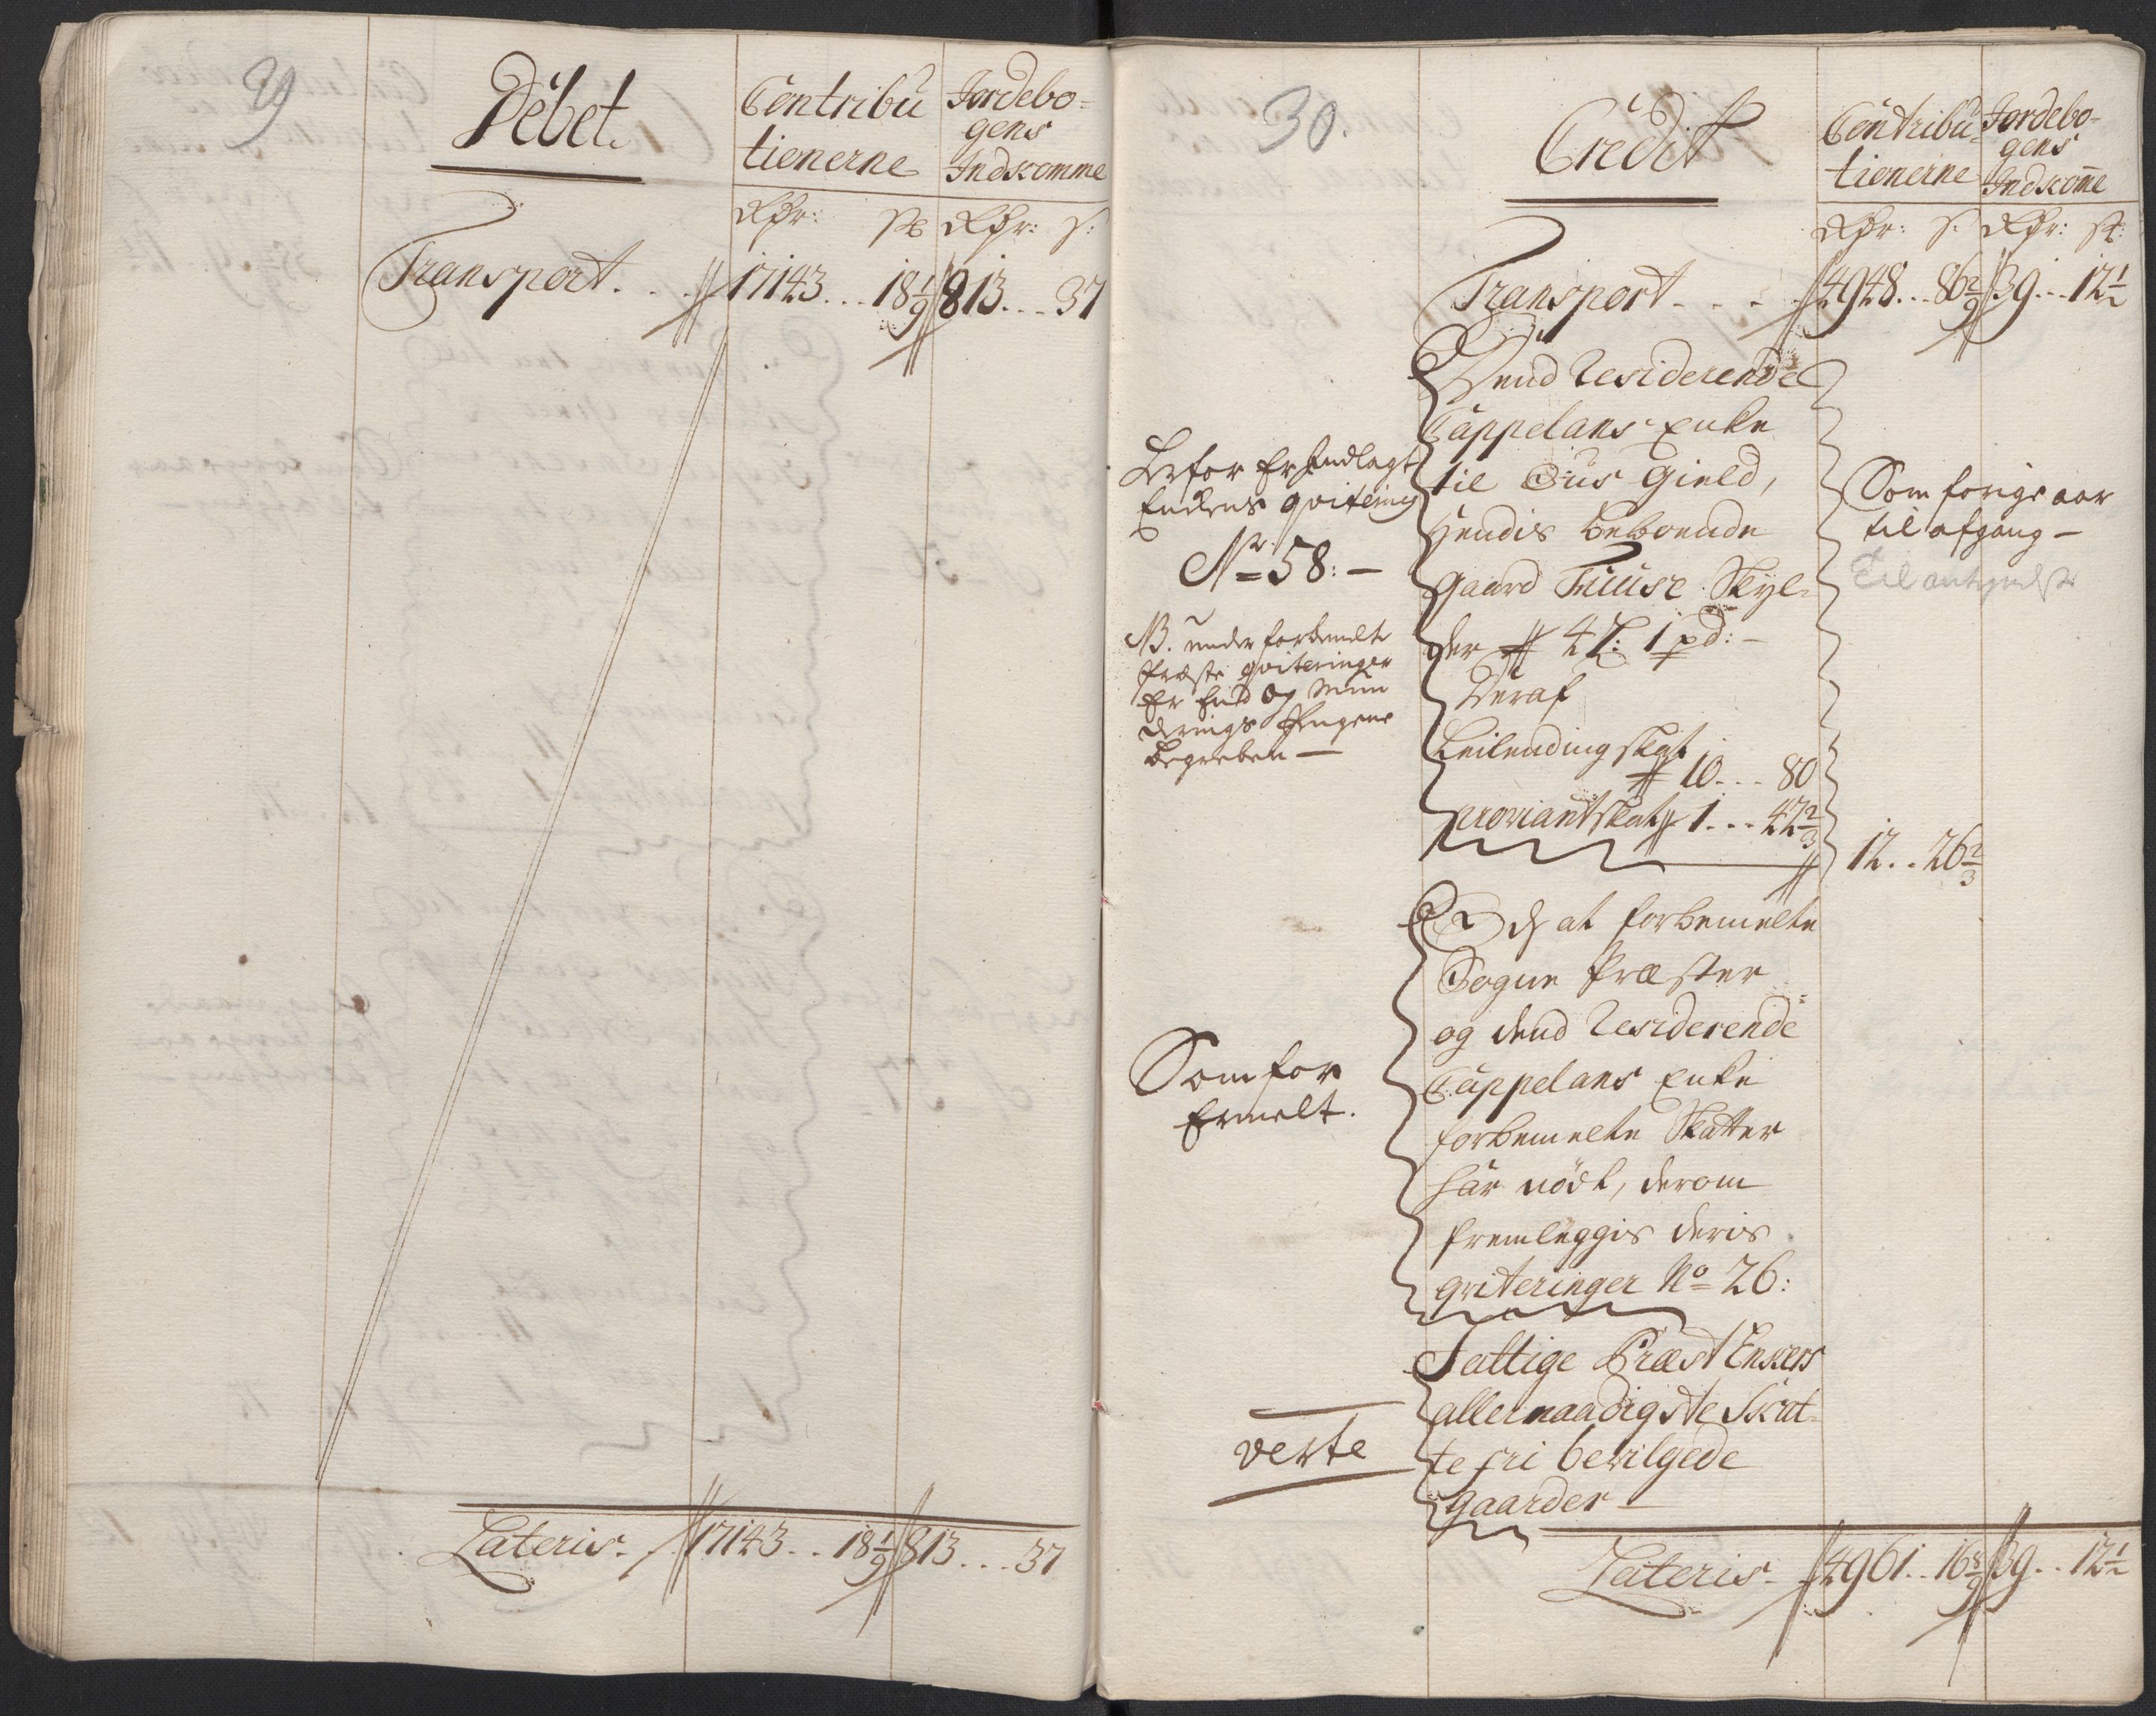 29
Debet.
Contribu
tionerne
Jordebo-
gens
Indkomme
Rdr: s: Rdr: s:
Transport. . . 17143... 18 1/9 813... 37
Lateris. . 17143.. 18 1/9 813... 37
30.
Credit
Contribu-
tionerne
Jordebo-
gens
Indkom̄e
Rdr: s. Rdr: s:
Transport. . . 4948... 86 2/9 39... 12 1/2
Dend Residerende
Cappelans Enke
til Gield,
Hendis beboende
gaard Skyl-
der 1 pd: -
Deraf
Leilending skat
10... 80
proviantskat 1... 42 2/3
12.. 26 2/3
Herfor Er Indlagt
Enkens qvitering
No 58: -
NB. under forbemelte
Præste qviteringer
Er End og Mun
derings Pengene
begreben —
Som forige aar
til afgang -
Og at forbemelte
Sogne Præster
og dend Residerende
Cappelans Enke
forbemelte Skatter
har nødt, derom
fremleggis deris
qviteringer No 26:
Som for
Ermelt.
Fattige Præst Enkers
allernaadigste Skat-
te fri bevilgede
gaarder —
verte
Lateris. 4961.. 16 8/9 39.. 12 1/2